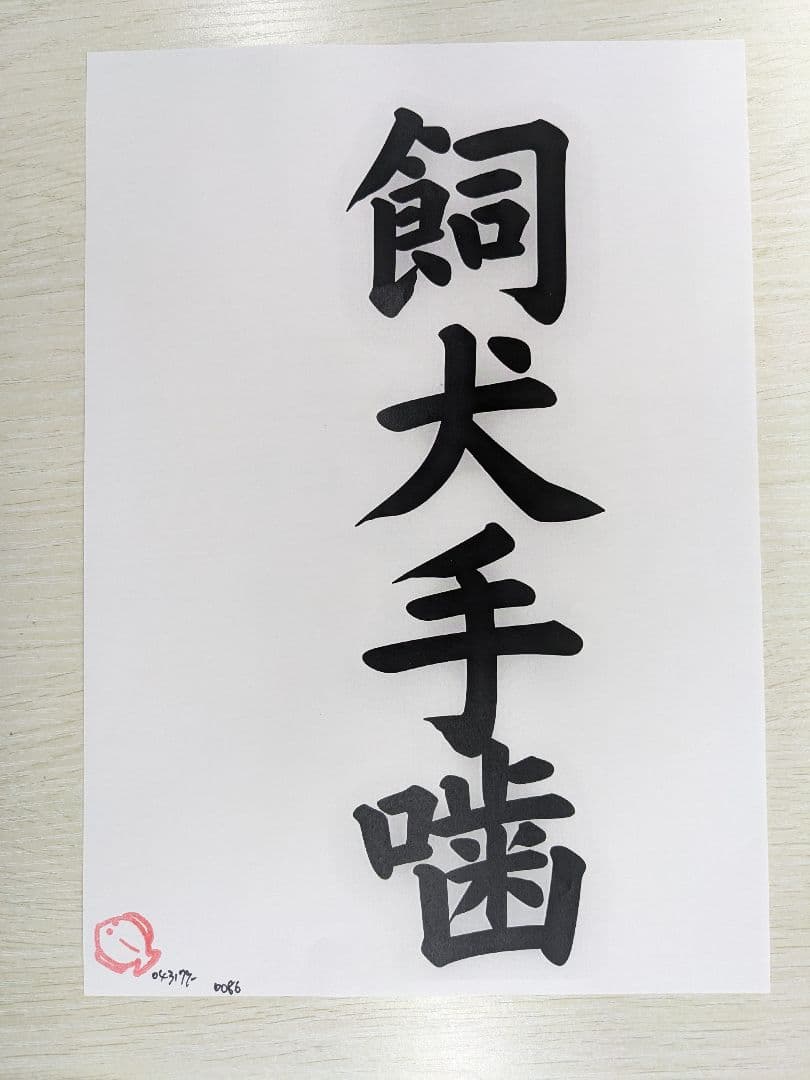 飼犬手噛
0086